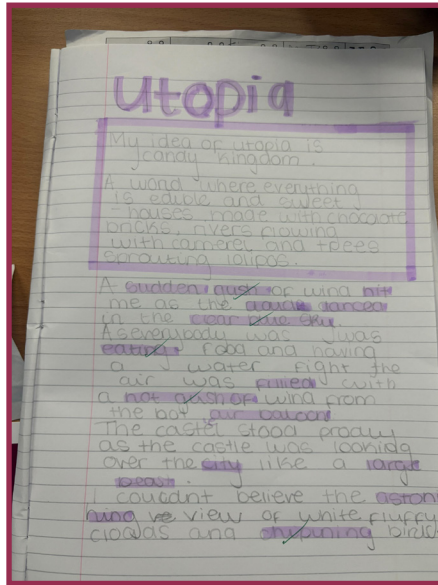 utopia
My idea of utopia is
candy kingdom.
A world where everything
is edible and sweet
- houses made with chocolate
bricks, rivers flowing
with camerel and trees
sprouting lolipos.
A sudden gush of wind hit
me as the danced
in the clear blue sky.
As everybody was was
eating and having
a water fight the
air was filled with
a hot gush of wind from
the hot air baloon
The castel stood proudly
as the castle was looking
over the city like a large
beast.
I couldnt believe the aston
hing view of white fluffy
clouds and birds